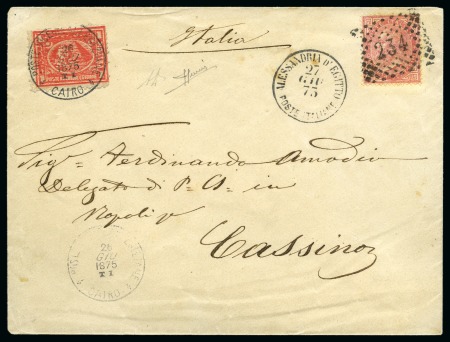 Italia
26
1875
CAIRO
ALESSANDRIA D'EGITTO
27
GIU
75
POSTE ITALIANE
234
Sig.r Ferdinando Amodio
Delegato di P. S. in
Napoli p
Cassino
26
GIU
1875
CAIRO